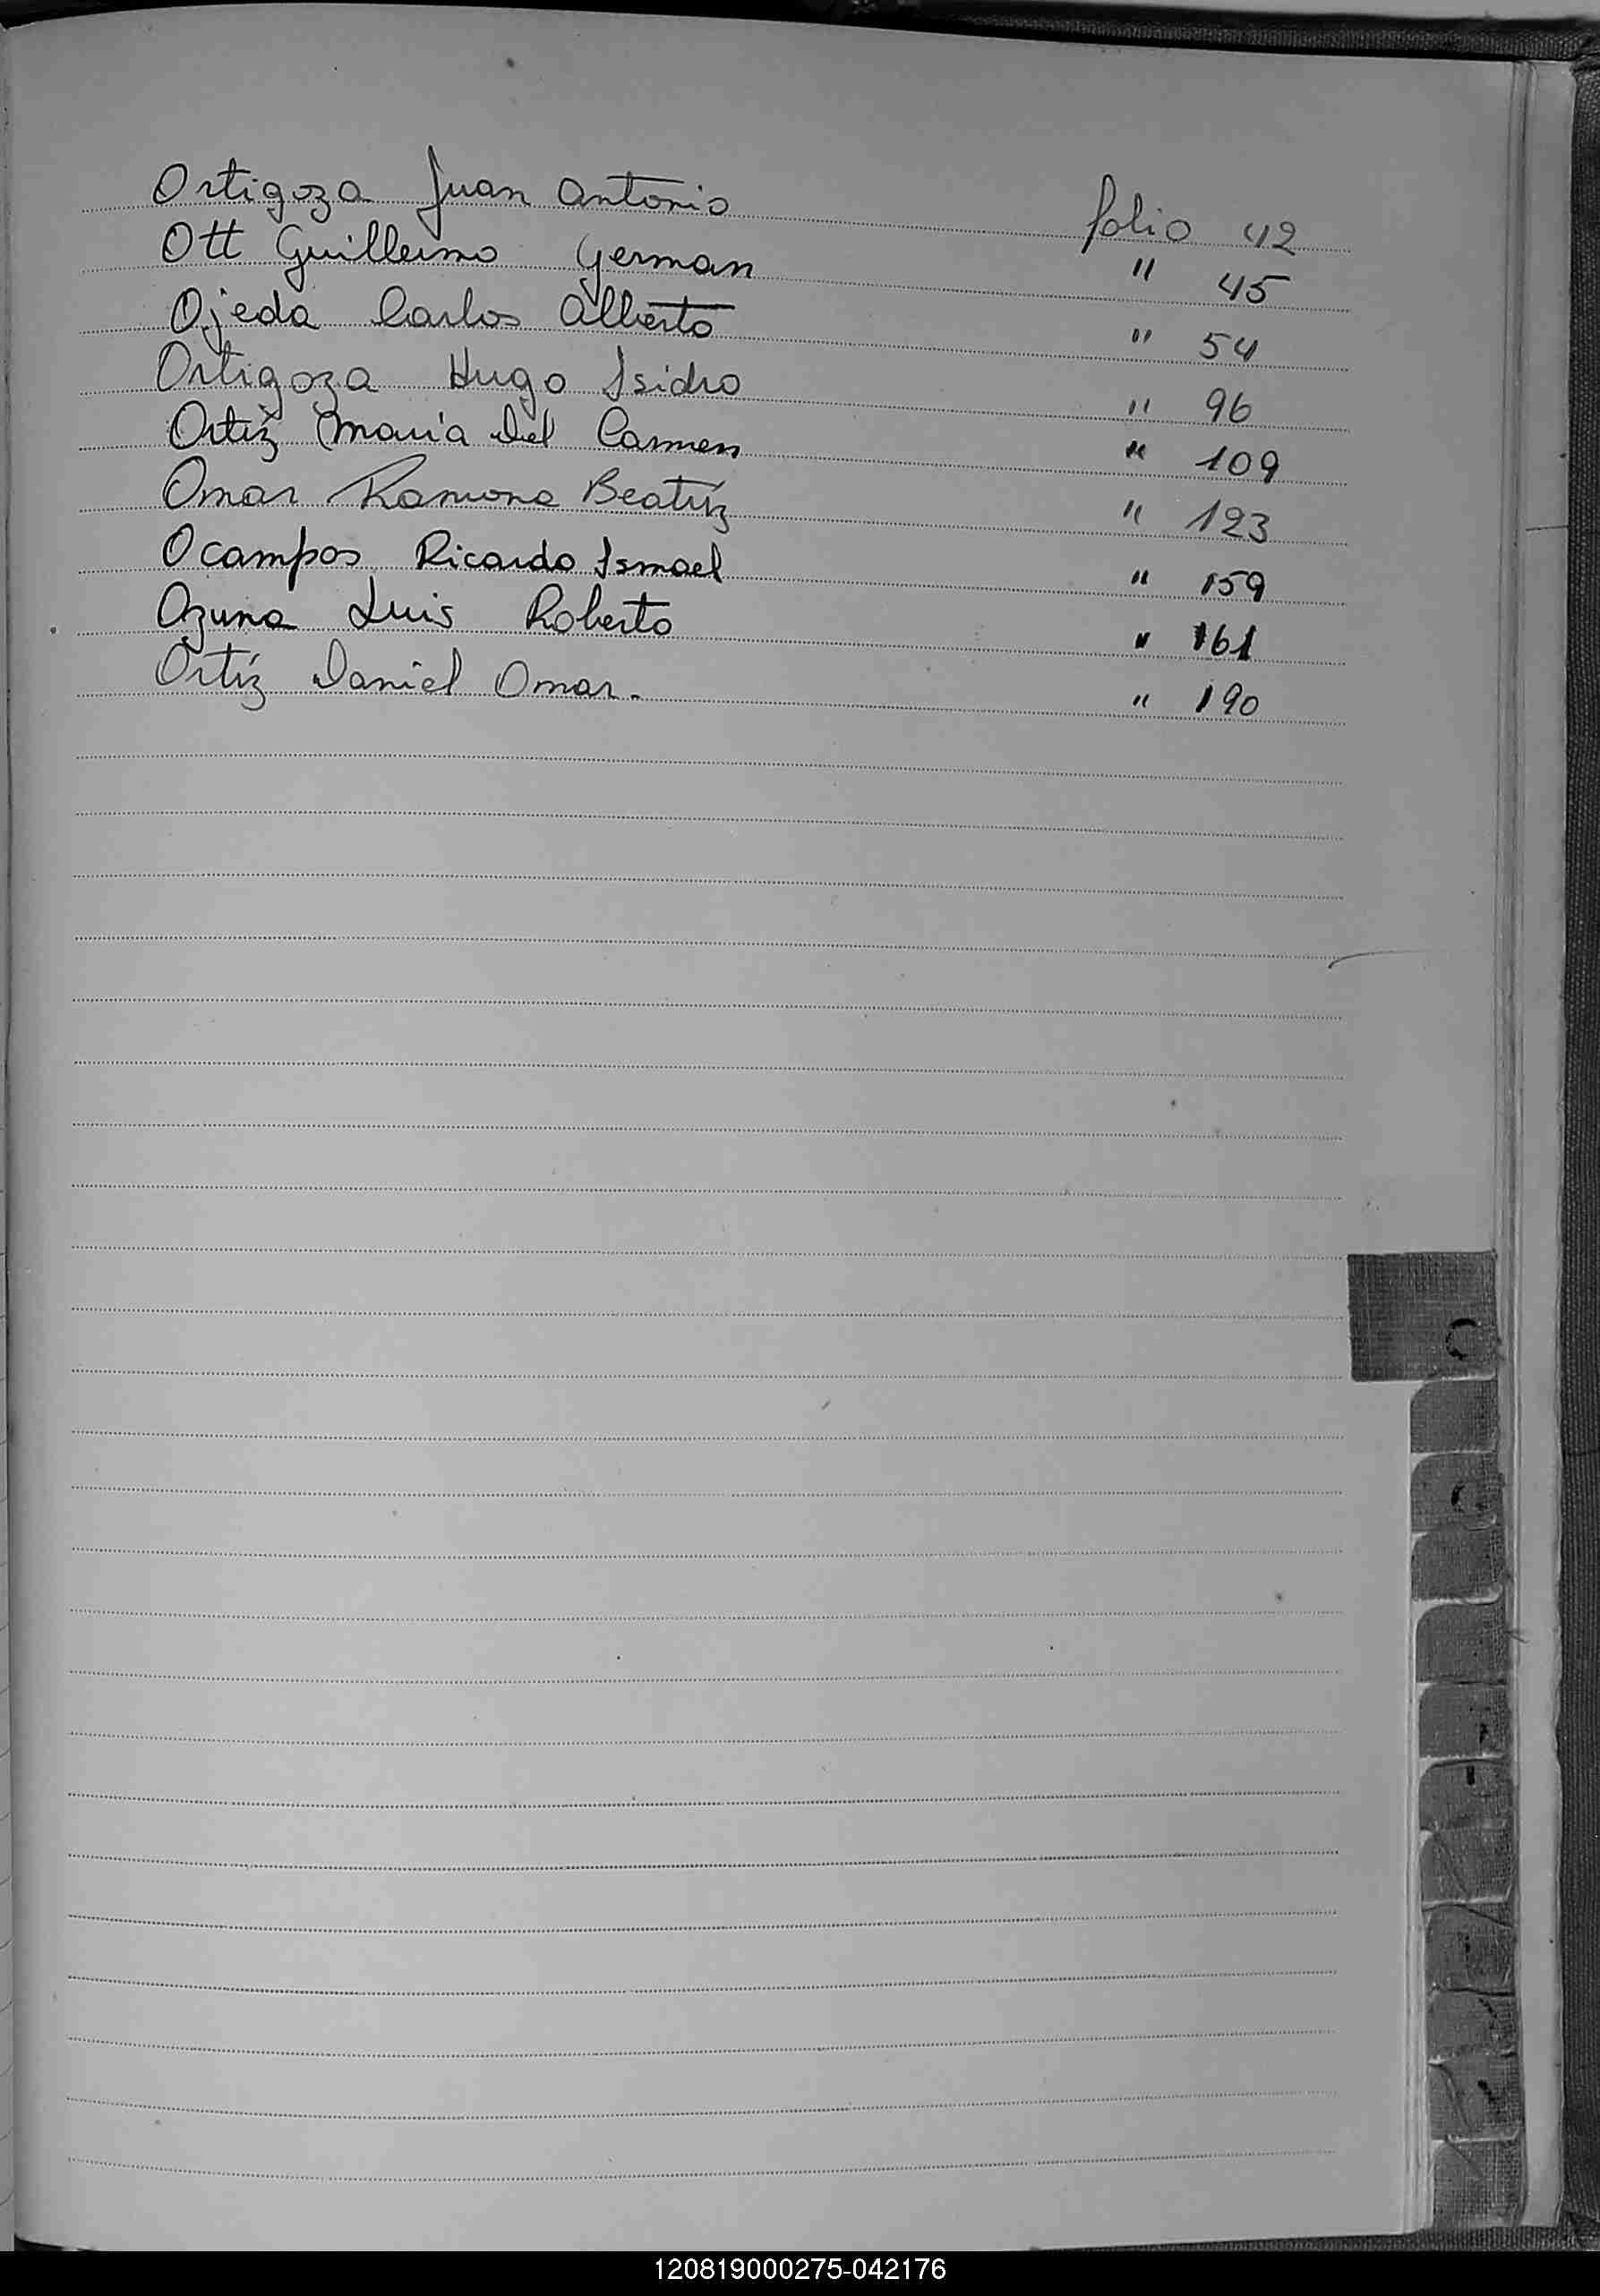 Ortigoza Juan Antonio folio 42
Ott Guillermo German " 45
Ojeda Carlos Alberto " 54
Ortigoza Hugo Isidro " 96
Ortiz Maria Del Carmen " 109
Omar Ramona Beatriz " 123
Ocampos Ricardo Ismael " 159
Ozuna Luis Roberto " 161
Ortíz Daniel Omar. " 190
120819000275-042176